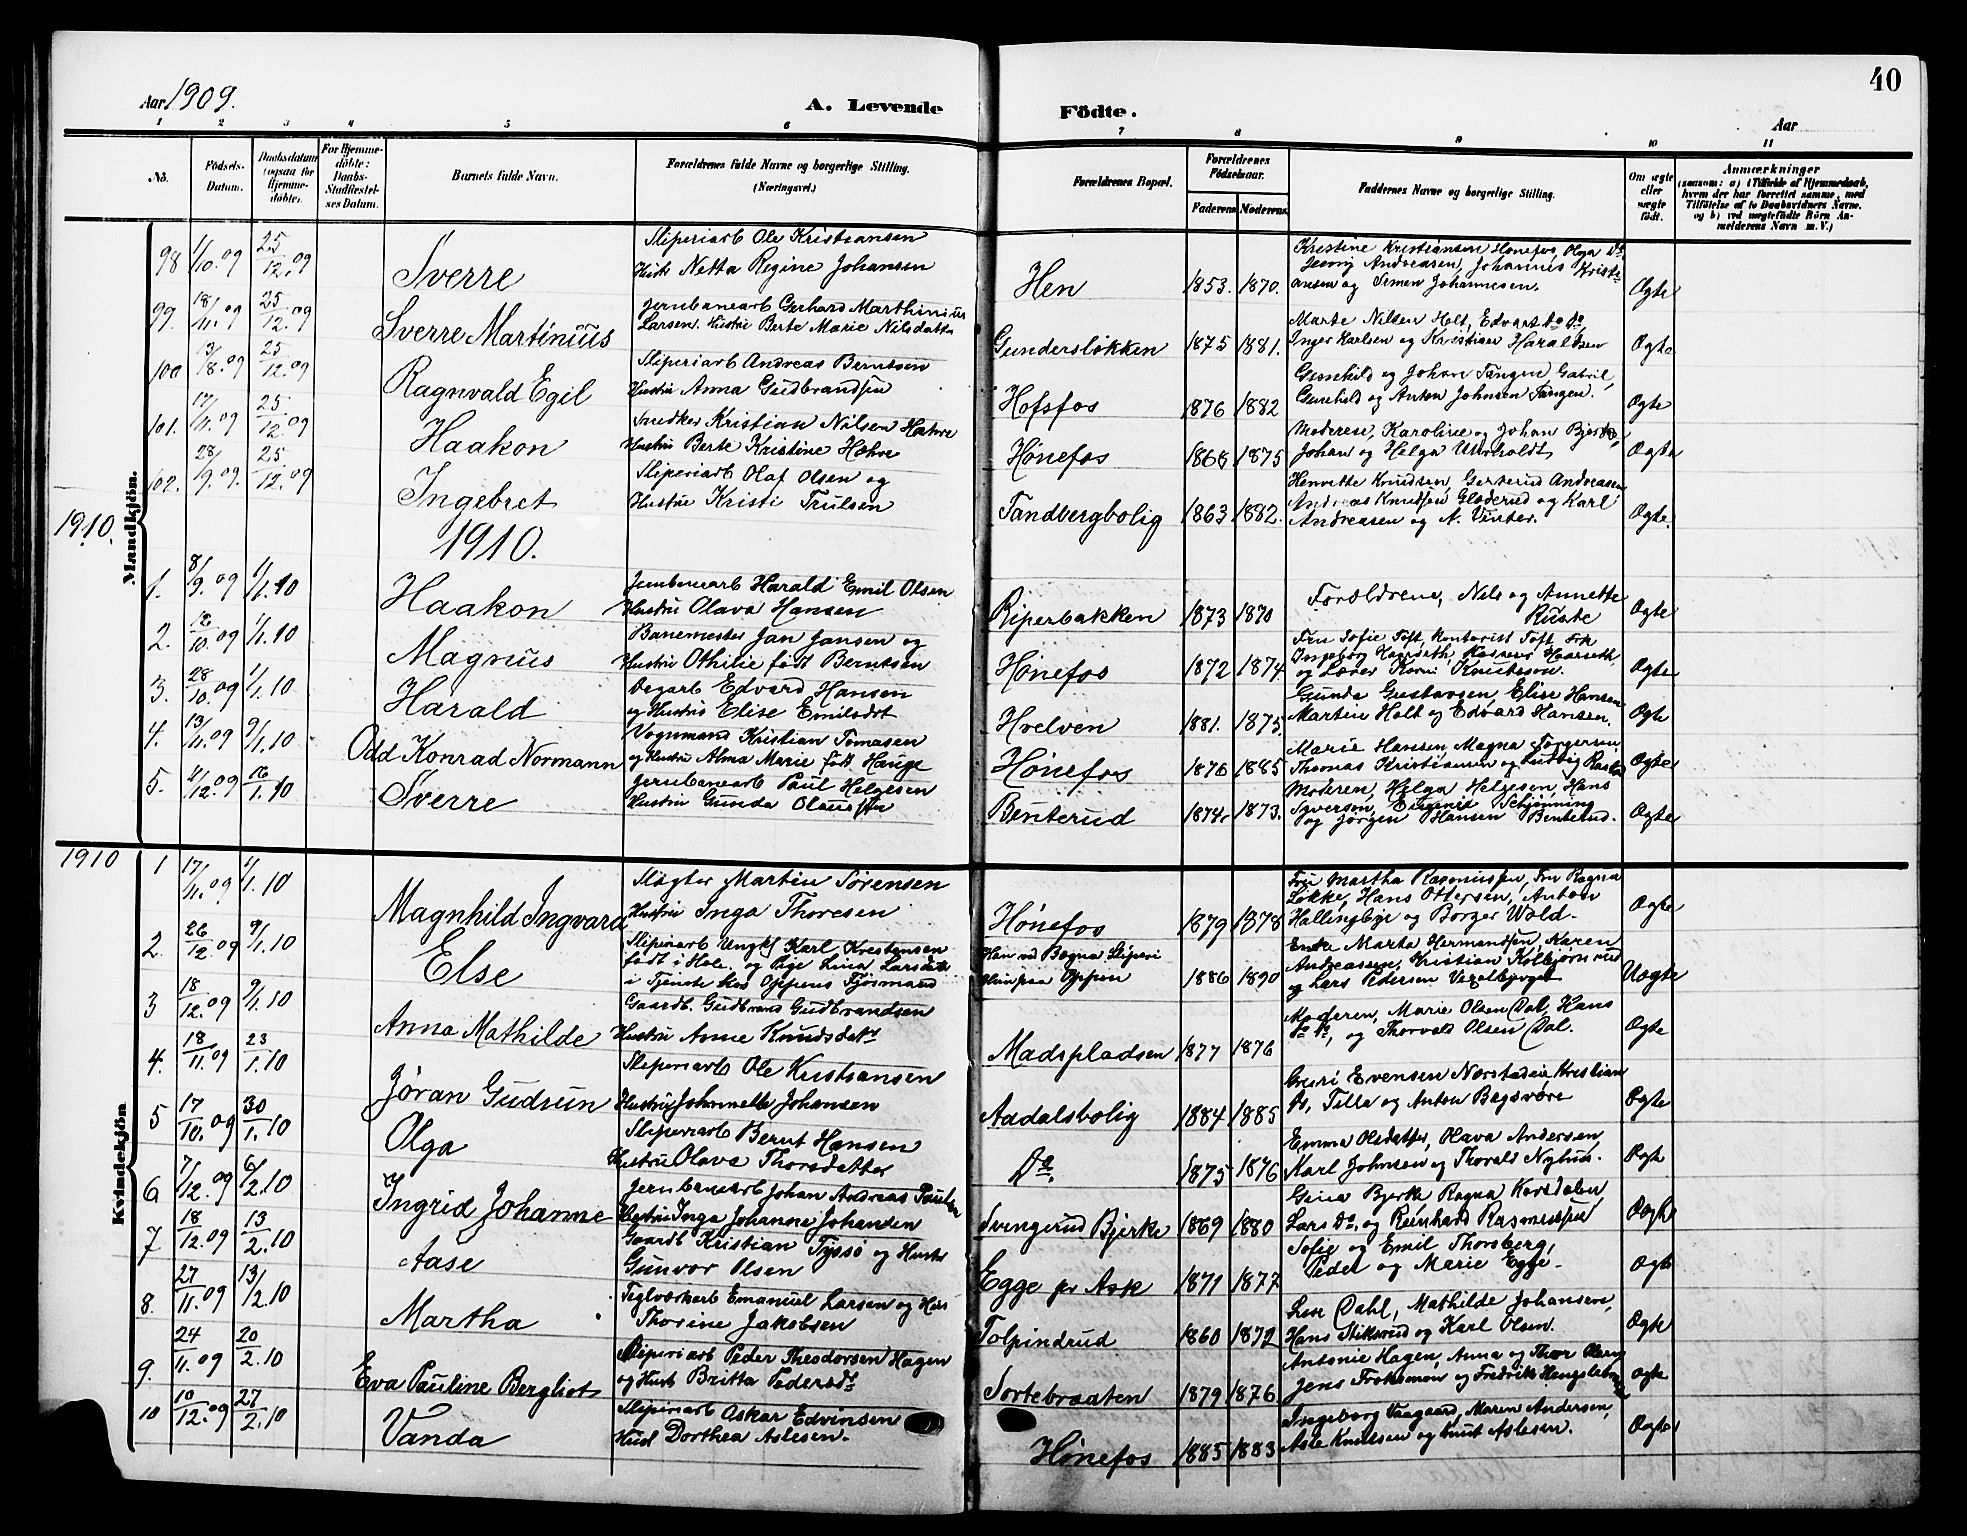 40
Aar 1909.
A. Levende Födte.
Aar
1 2 3 4 5 6 7 8 9 10 11
No.
Födsels-Datum.
Daabsdatum (ogsaa for Hjemme-döbte).
For Hjemme-döbte: Daabs-Stadfæstel-ses Datum.
Barnets fulde Navn.
Forældrenes fulde Navne og borgerlige Stilling. (Næringsvei.)
Forældrenes Bopæl.
Forældrenes Födselsaar.
Faderens Moderens.
Faddernes Navne og borgerlige Stilling.
Om ægte eller uægte födt.
Anmærkninger
(saasom: a) i Tilfælde af Hjemmedaab, hvem der har forrettet samme, med Tilföielse af to Daabsvidners Navne. og b) ved uægtefödte Börn An-melderens Navn m. V.)
Mandkjön.
98 1/10.09 25/12.09 Sverre Sliperiarb Ole Kristiansen
Hust Netta Regine Johansen Hen 1853. 1870. Kristine Kristiansen Hønefos, Olga Do
Jenny Andreasen, Johannes Kristi-
ansen og Johannesen. Ægte
99. 18/11.09 25/12.09 Sverre Martinius Jernbanearb Gerhard Marthinius
Larsen. Hustru Berte Marie Nilsdatter Gundersløkken 1875 1881. Marte Nilsen Holt, Edvart Do Do,
Inger Karlsen og Kristian Haraldsen Ægte
100 13/8.09 25/12.09 Ragnvald Egil Sliperiarb Andreas Berntsen
Hustru Anna Gudbrandsen Hofsfos 1876 1882 Gunhild og Johan Tangen Gabriel,
Gunhild og Anton Johnsen Tangen. Ægte
101. 17/11.09 25/12.09 Haakon Snedker Kristian Nilsen Hahre
Hustru Berte Kristine Hahre Hønefos 1866 1875 Moderen, Karoline og Johan Bjerke,
Johan og Helga Ulerholdt Ægte
102. 28/9.09. 25/12.09 Ingebret Sliperiarb Olaf Olsen og
Hustru Kristi Trulsen Tandbergbolig 1863 1882. Henrette Knudsen, Gerterud Andreasen
Andreas Knudsen Gladerud og Karl
Andreasen og N. Vinter. Ægte.
1910.
1910.
1. 8/9.09 1/1.10 Haakon Jernbanearb Harald Emil Olsen
Hustru Olava Hansen Riperbakken 1873 1870 Forældrene, Nils og Annette
Ruste Ægte
2. 12/10.09 1/1.10 Magnus Banemester Jan Jansen og
Hustru Othilie født Berntsen Hønefos 1872 1874 Fru Sofie Toft, kontorist Toft, Frk
Ingeborg Haarseth, Haarseth,
og Lærer Knudsson. Ægte
3. 28/10.09 1/1.10 Harald Vegarb Edvard Hansen
og Hustru Elise Emilsdat Hvelven 1881. 1875. Gunda Gustavsen, Elise Hansen
Martin Holt og Edvard Hansen. Ægte
4. 13/11.09 9/1.10 Odd Konrad Normann Vognmand Kristian Tomasen
og Hustru Alma Marie født Hauge Hønefos 1876 1885 Marie Hansen, Magna Torgersen,
Thomas Kristiansen og Ludvig Ægte
5. 4/12.09 16/1.10 Sverre Jernbanearb Paul Helgesen
Hustru Gunda Olaussen Benterud 1874 1873. Moderen, Helga Helgesen, Hans
Syversøn, Eugenie Schjønning
og Jørgen Hansen Benterud. Ægte
1910
Kvindekjön
1 17/11.09 1/1.10 Magnhild Ingvara Slagter Martin Sørensen
Hustru Inga Thoresen Hønefos 1879 1878 Fru Martha Rasmussen, Fru Ragna
Løkke, Hans Ottersen, Anton
Hallingbye og Borger Wold. Ægte
2. 26/12.09 9/1.10 Else Sliperiarb Ungk Karl Kristensen
født i Hole, og Pige Lina Larsdatter
i Tjeneste hos Oppens Fjøsmand Han ved Bægna Sliperi
Hun paa Oppen 1886 1890 Enke Marta Hermandsen, Karen
Andreassen, Kristian Kolbjørnsrud
og Lars Pedersen Vexelbyget Uægte
3 18/12.09 9/1.10 Anna Mathilde Gaardb. Gudbrand Gudbrandsen
Hustru Anne Knudsdatr Madspladsen 1877 1876 Moderen, Marie Olsen Dal, Hans
Do Do, og Thorvald Olsen Dal. Ægte
4. 18/11.09 23/1.10 Jøran Gudrun Sliperiarb Ole Kristiansen
Hustru Johannette Johansen Aadalsbolig 1884 1885 Guri Evensen Kristian
Do, Tilla og Anton Bagsvære Ægte
5 17/10.09 30/1.10 Olga Sliperiarb Bernt Hansen
Hustru Olava Thorsdatter Do. 1875 1876 Emma Olsdatter, Olava Andersen,
Karl Johnsen og Thorvald Nyhus. Ægte
6 7/12.09 6/2.10 Ingrid Johanne Jernbanearb Johan Andreas Paulsen
Hustru Inga Johanne Johansen Svingerud Bjerke 1869 1880 Gina Bjerke Ragna Korsdalen,
Lars Do. og Reinhard Rasmussen Ægte
7 18/12.09 13/2.10 Aase Gaardb Kristian Tyssø og Hustru
Gunvor Olsen Egge pr Ask 1871 1877 Sofie og Emil Thorsberg,
Peder og Marie Egge. Ægte
8. 27/11.09 13/2.10 Martha Teglverkarb Emanuel Larsen og Hus
Thorine Jakobsen Tolpindrud 1860 1872 Lise Dahl, Mathilde Johansen,
Hans Stiksrud og Karl Olsen. Ægte
9. 24/11.09 20/2.10 Eva Pauline Bergliot Sliperiarb Peder Theodorsen Hagen
og Hust Britta Pedersdt Sortebraaten 1879 1876 Antonie Hagen, Anna og Thor
Jens Troksmon og Fredrik Ægte
10 10/12.09 27/2.10 Vanda Sliperiarb Askar Edvinsen
Hust Dorthea Aslesen. Hønefos 1885 1883 Ingeborg Vaagaard, Maren Andersen,
Asle Knutsen og Knut Aslesen. Ægte